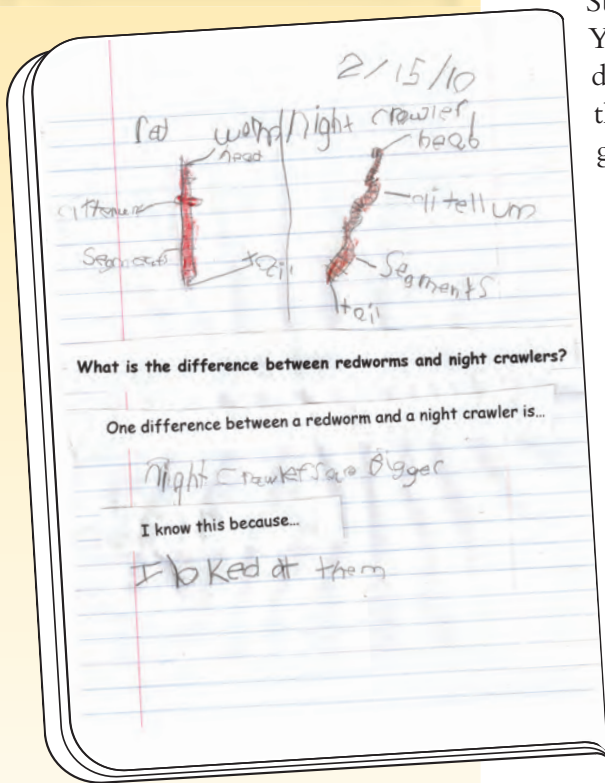 2/15/10
red worm/night crawler
head
head
clitellum
Segments
tail
Segments
tail
What is the difference between redworms and night crawlers?
One difference between a redworm and a night crawler is...
night crawlers are Bigger
I know this because...
I looked at them